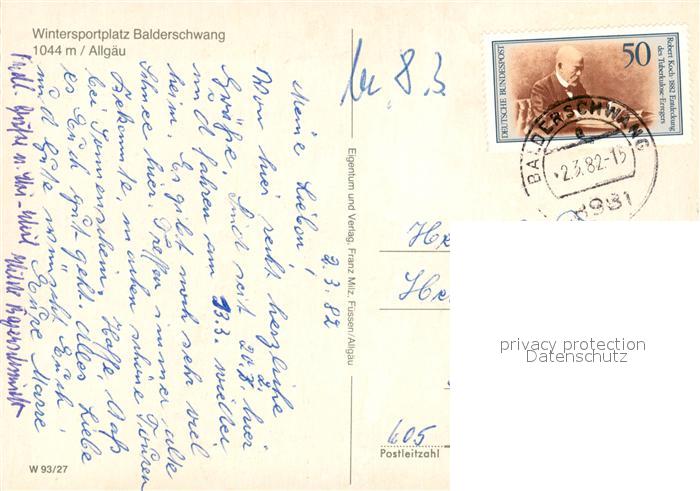 Wintersportplatz Balderschwang
1044 m / Allgäu
2.3.82
Meine Lieben!
Von hier recht herzliche
Grüße. Sind seit 20.2. hier
und fahren am 13.3. wieder
heim. Es gibt noch sehr viel
Schnee hier. Treffen immer alte
Bekannte, machen schöne Touren
bei Sonnenschein. Hoffe, daß
es Euch gut geht. Alles Liebe
und Gute wünscht Euch
Eure
8.3.
Eigentum und Verlag, Franz Milz, Füssen/Allgäu
W 93/27
50
DEUTSCHE BUNDESPOST
Robert Koch 1882 Entdeckung
des Tuberkulose-Erregers
BALDERSCHWANG
-2.3.82-15
8981
privacy protection
Datenschutz
605
Postleitzahl